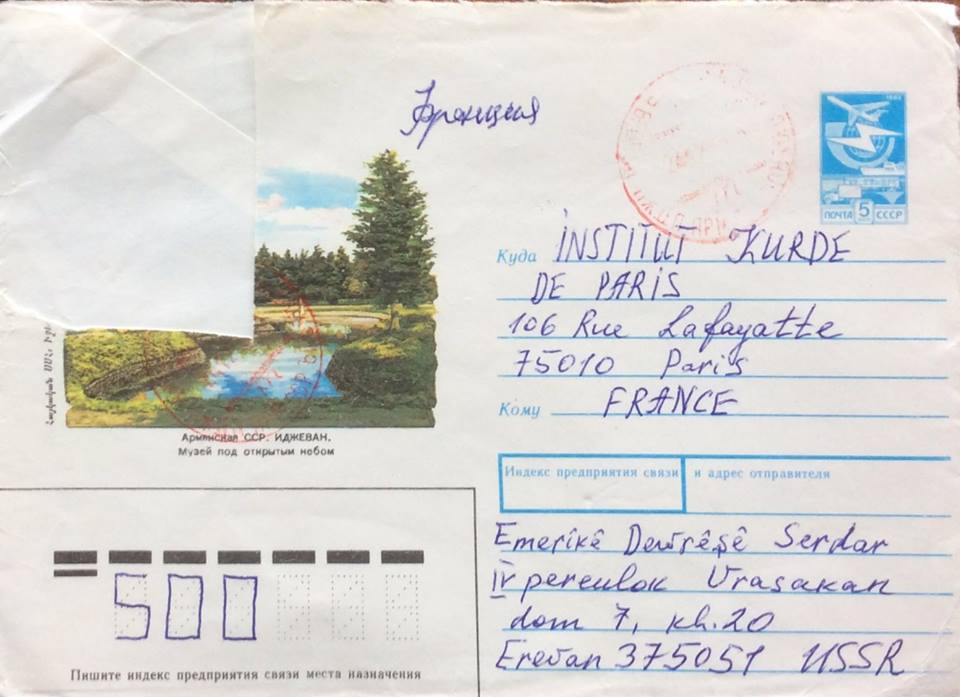 Франция
1982
ПОЧТА 5 СССР
Куда INSTITUT KURDE
DE PARIS
106 Rue Lafayatte
75010 Paris
Кому FRANCE
Հայկական ՍՍՀ
Армянская ССР. ИДЖЕВАН.
Музей под открытым небом
Индекс предприятия связи и адрес отправителя
Emerîkê Dewrêşê Serdar
IV pereulok Vrasakan
dom 7, kh. 20
Erevan 375051 USSR
500
Пишите индекс предприятия связи места назначения